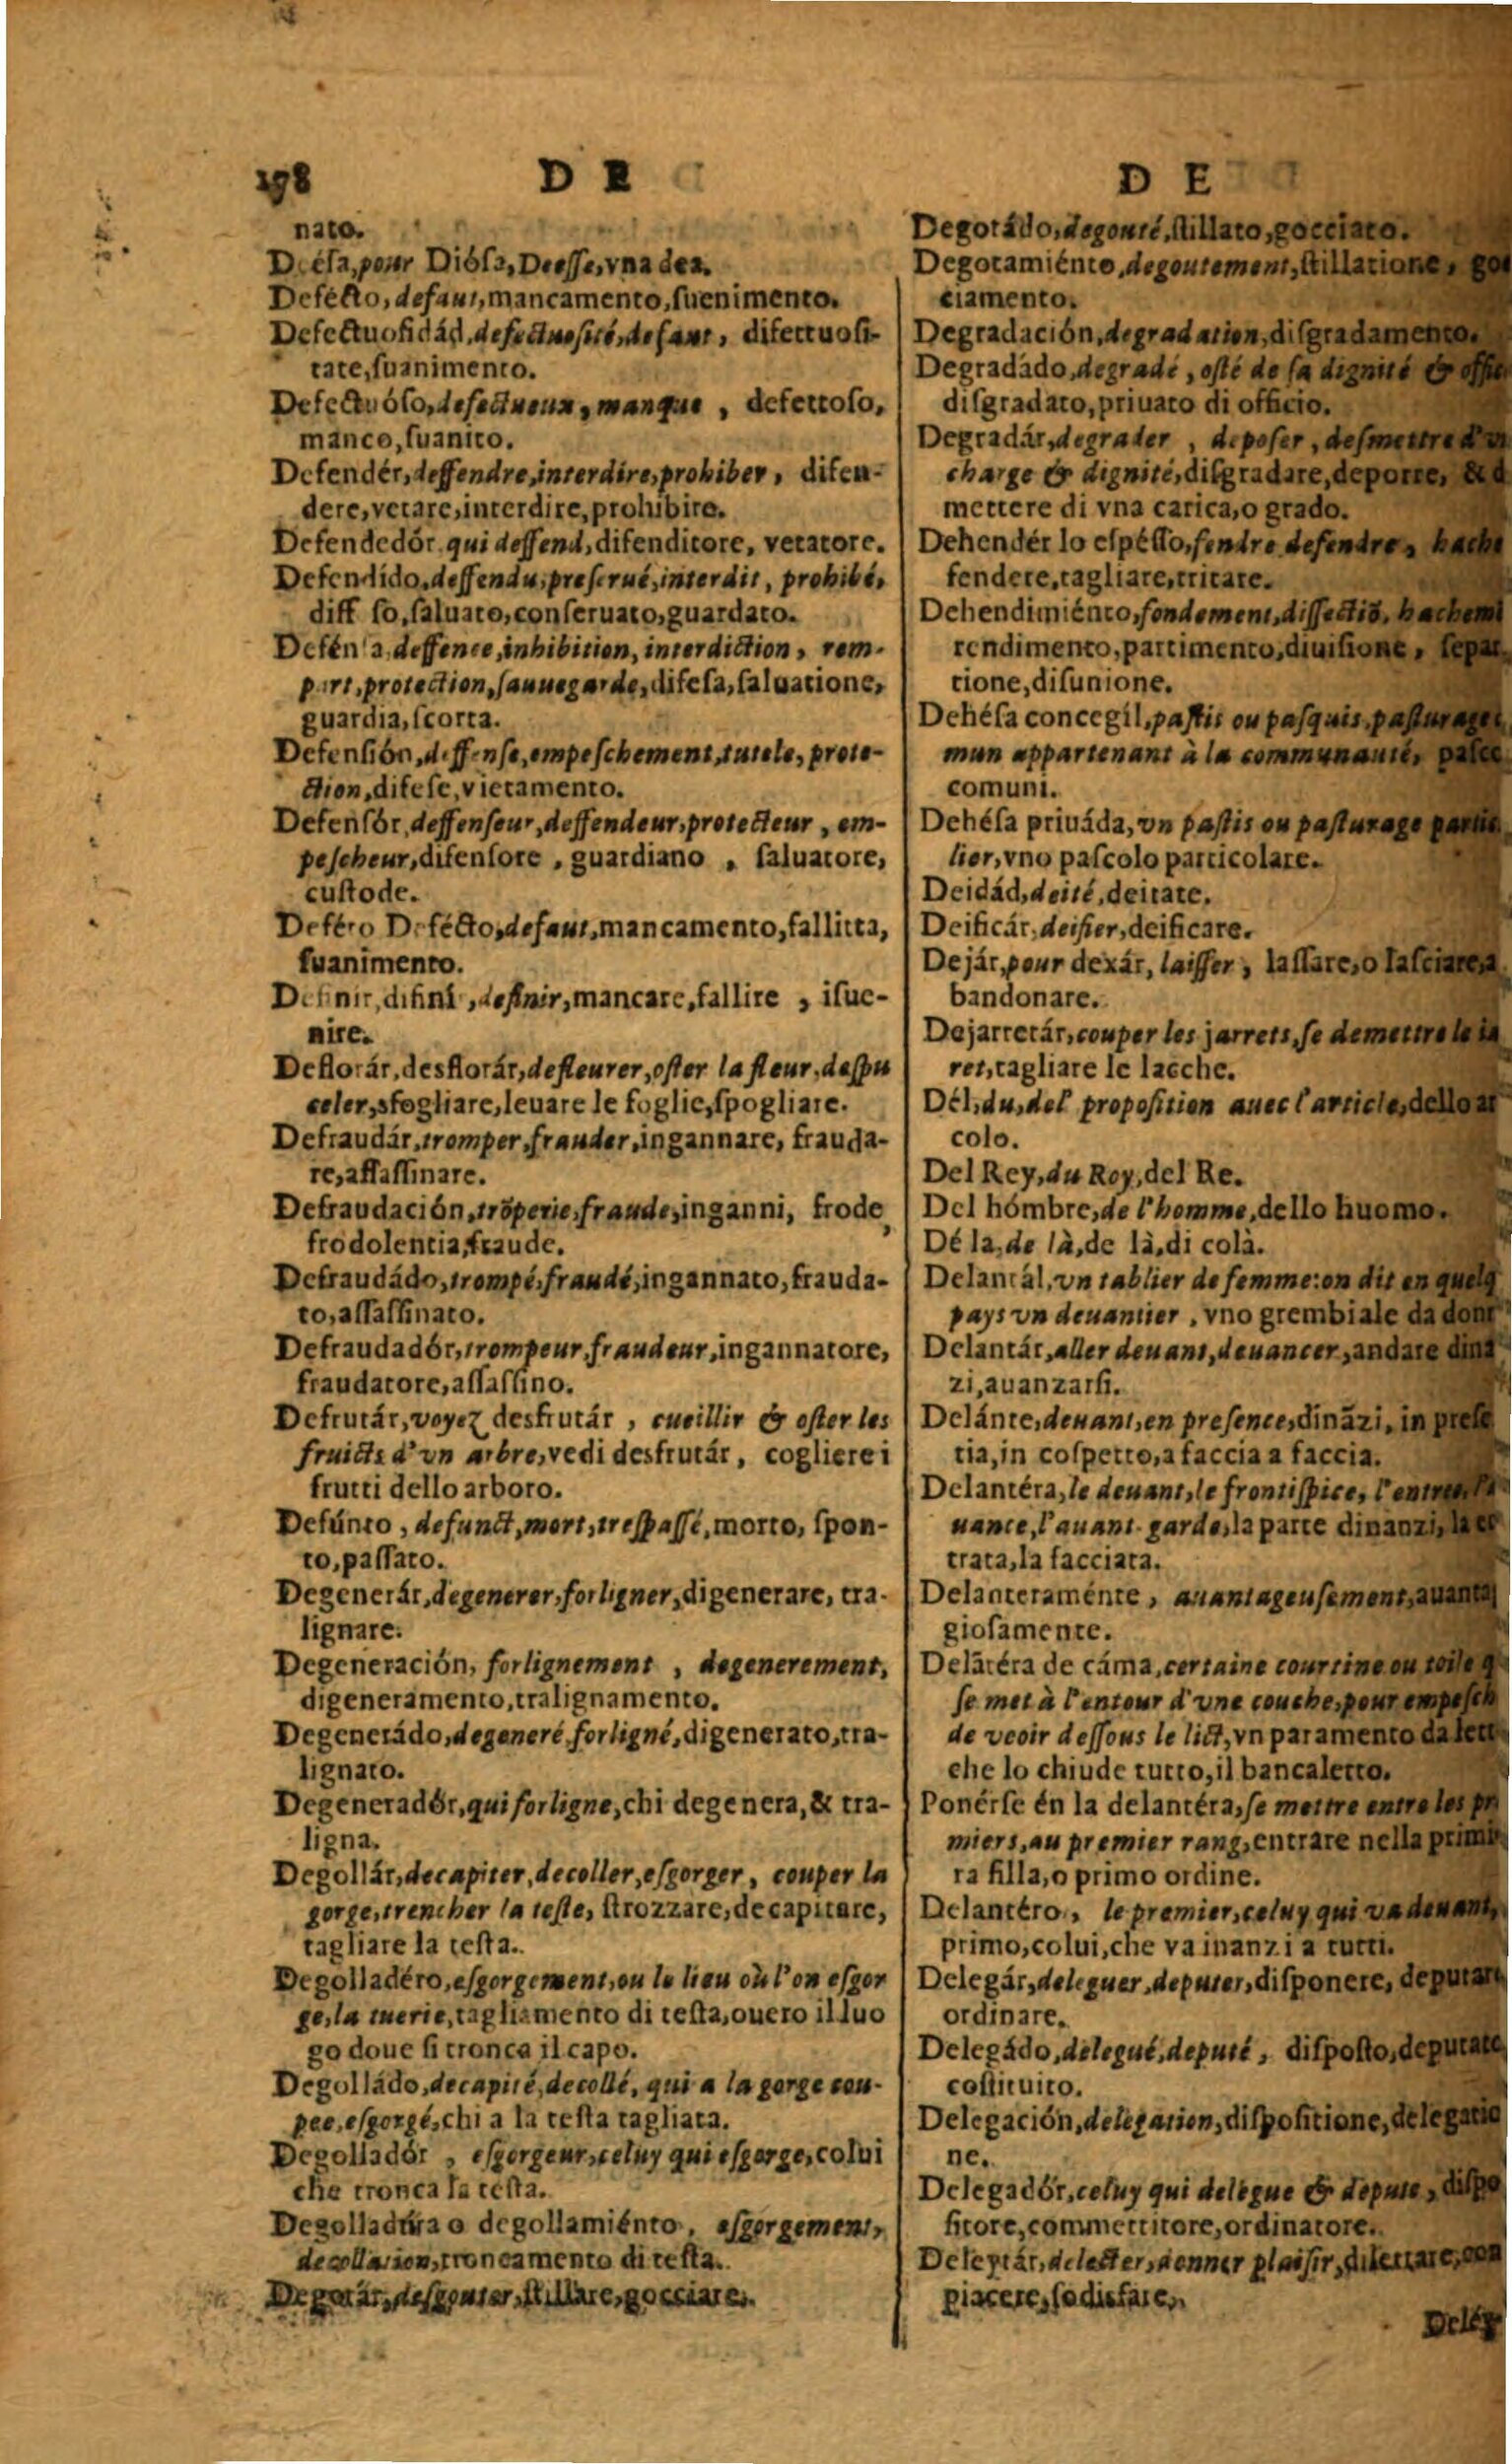 198 D E
nato.
Deésa, pour Diósa, Deesse, vna dea.
Defécto, defaut, mancamento, suenimento.
Defectuosidád, defectuosité, defaut, difettuosi-
tate, suanimento.
Defectuóso, defectueux, manque, defettoso,
manco, suanito.
Defendér, deffendre, interdire, prohiber, difen-
dere, vetare, interdire, prohibire.
Defendedór qui deffend, difenditore, vetatore.
Defendído, deffendu, preserué, interdit, prohibé,
diff so, saluato, conseruato, guardato.
Defensa, deffence, inhibition, interdiction, rem-
part, protection, sauuegarde, difesa, saluatione,
guardia, scorta.
Defensión, deffense, empeschement, tutele, prote-
ction, difese, vietamento.
Defensór, deffenseur, deffendeur, protecteur, em-
pescheur, difensore, guardiano, saluatore,
custode.
Deféto Defécto, defaut, mancamento, fallitta,
suanimento.
Definir, difiní, definir, mancare, fallire, isue-
nire.
Deflorár, desflorár, defleurer, oster la fleur, despu
celer, sfogliare, leuare le foglie, spogliare.
Defraudár, tromper, frauder, ingannare, frauda-
re, assassinare.
Defraudación, trõperie, fraude, inganni, frode,
frodolentia, fraude.
Defraudádo, trompé, fraudé, ingannato, frauda-
to, assassinato.
Defraudadór, trompeur, fraudeur, ingannatore,
fraudatore, assassino.
Defrutár, voyez desfrutár, cueillir & oster les
fruicts d'vn arbre, vedi desfrutár, cogliere i
frutti dello arboro.
Defúnto, defunct, mort, trespassé, morto, spon-
to, passato.
Degenerár, degenerer, forligner, digenerare, tra-
lignare.
Degeneración, forlignement, degenerement,
digeneramento, tralignamento.
Degenerádo, degeneré, forligné, digenerato, tra-
lignato.
Degeneradór, qui forligne, chi degenera, & tra-
ligna.
Degollár, decapiter, decoller, esgorger, couper la
gorge, trencher la teste, strozzare, decapitare,
tagliare la testa.
Degolladéro, esgorgement, ou le lieu où l'on esgor
ge, la tuerie, tagliamento di testa, ouero il luo
go doue si tronca il capo.
Degolládo, decapité, decollé, qui a la gorge cou-
pee, esgorgé, chi a la testa tagliata.
Degolladór, esgorgeur, celuy qui esgorge, colui
che tronca la testa.
Degolladúra o degollamiénto, esgorgement,
decollation, troncamento di testa.
Degotár, desgouter, stillare, gocciare.
D E
Degotádo, degouté, stillato, gocciato.
Degotamiénto, degoutement, stillatione, goc
ciamento.
Degradación, degradation, disgradamento.
Degradádo, degradé, osté de sa dignité & office
disgradato, priuato di officio.
Degradár, degrader, deposer, desmettre d'vn
charge & dignité, disgradare, deporre, & d
mettere di vna carica, o grado.
Dehendér lo espésso, fendre defendre, hache
fendere, tagliare, tritare.
Dehendimiénto, fondement, dissectiõ, hachem
rendimento, partimento, diuisione, separ
tione, disunione.
Dehésa concegil, pastis ou pasquis, pasturage
mun appartenant à la communauté, pasce
comuni.
Dehésa priuáda, vn pastis ou pasturage partic
lier, vno pascolo particolare.
Deidád, deité, deitate.
Deificár, deifier, deificare.
Dejár, pour dexár, laisser, lassare, o lasciare, a
bandonare.
Dejarretár, couper les jarrets, se demettre le ia
ret, tagliare le lacche.
Dél, du, del proposition auec l'article, dello ar
colo.
Del Rey, du Roy, del Re.
Del hómbre, de l'homme, dello huomo.
Dé la, de là, de là, di colà.
Delantál, vn tablier de femme: on dit en quelq
pays vn deuantier, vno grembiale da donn
Delantár, aller deuant, deuancer, andare dinã
zi, auanzarsi.
Delánte, deuant, en presence, dinãzi, in prese
tia, in cospetto, a faccia a faccia.
Delantéra, le deuant, le frontispice, l'entree, l'a
uance, l'auant-garde, la parte dinanzi, la en
trata, la facciata.
Delanteraménte, auantageusement, auantag
giosamente.
Delãtéra de cáma, certaine courtine ou toile q
se met à l'entour d'vne couche, pour empesch
de veoir dessous le lict, vn paramento da lett
che lo chiude tutto, il bancaletto.
Ponérse én la delantéra, se mettre entre les pr
miers, au premier rang, entrare nella prim
ra filla, o primo ordine.
Delantéro, le premier, celuy qui va deuant,
primo, colui, che va inanzi a tutti.
Delegár, deleguer, deputer, disponere, deputare
ordinare.
Delegádo, delegué, deputé, disposto, deputato
costituito.
Delegación, delegation, dispositione, delegatio
ne.
Delegadór, celuy qui delegue & depute, dispo
sitore, commettitore, ordinatore.
Deleytár, delecter, donner plaisir, dilettare, con
piacere, sodisfare.
Deléy